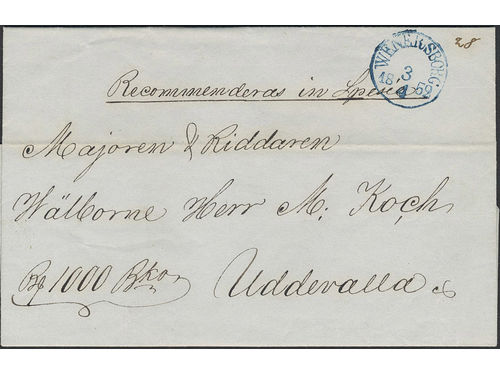 28
WENERSBORG
3
18 59
4
Recommenderas in Specie
Majoren & Riddaren
Wälborne Herr M: Koch
1000 Bko
Uddevalla